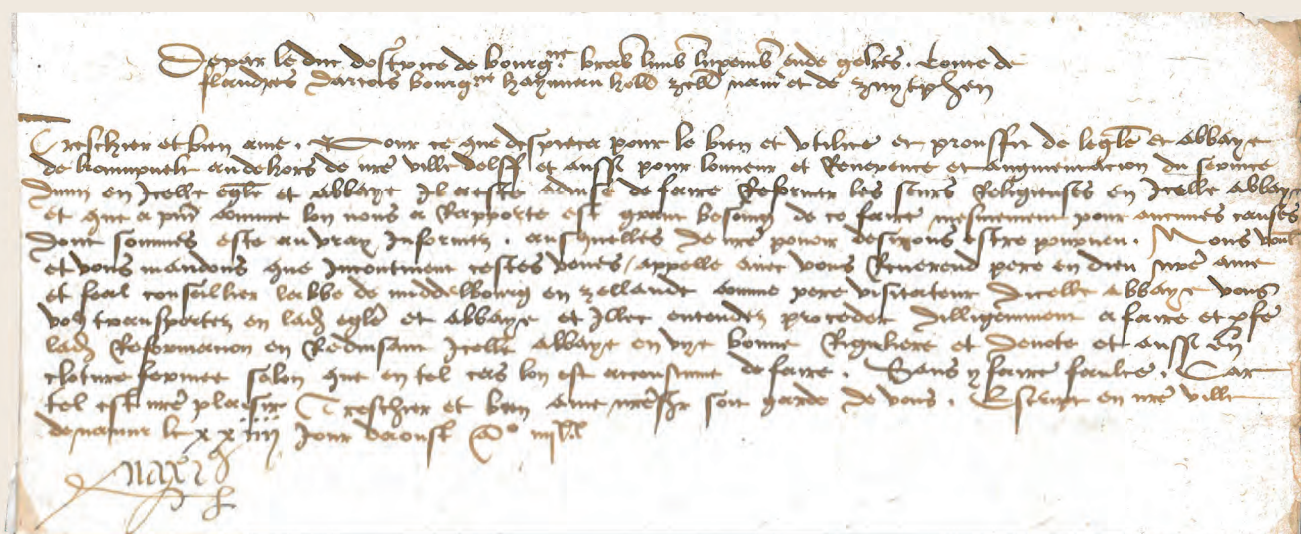 De par le duc dostrice de bourgne brab limb luxemb ende gelres. Conte de
flandres dartois bourgne haynnau holl zell namr et de zuytphen
Treschier et bien ame. Pour ce que despieca pour le bien et utilite et prouffit de leglise et abbaye
de au dehors de nre ville delff et aussi pour lonneur et Reverence et augmentacion du service
divin en Icelle eglise et abbaye Il a este advise de faire Reformer les seurs Religieuses en Icelle abbaye
et que a pnt comme lon nous a Rapporte est grant besoing de ce faire mesmement pour aucunes causes
dont sommes este au vray Informez. ausquelles de nre povoir desirons estre pourveu. Nous voulons
et vous mandons que Incontinent cestes veues / appelle avec vous Reverend pere en dieu nre ame
et feal conseillier labbe de middelbourg en zellande comme pere visitateur dicelle abbaye vous
vos transportez en lad eglise et abbaye et Illec entendez proceder dilligemment a faire et pfe
lad Reformacion en Reduisant Icelle abbaye en vye bonne Riguliere et devote et aussi en
cloture fermee selon que en tel cas lon est accoustume de faire. Sans y faire faulte. Car
tel est nre plaisir Treschier et bien ame nresr soit garde de vous. Escript en nre ville
de namur le xxiiij Jour daoust